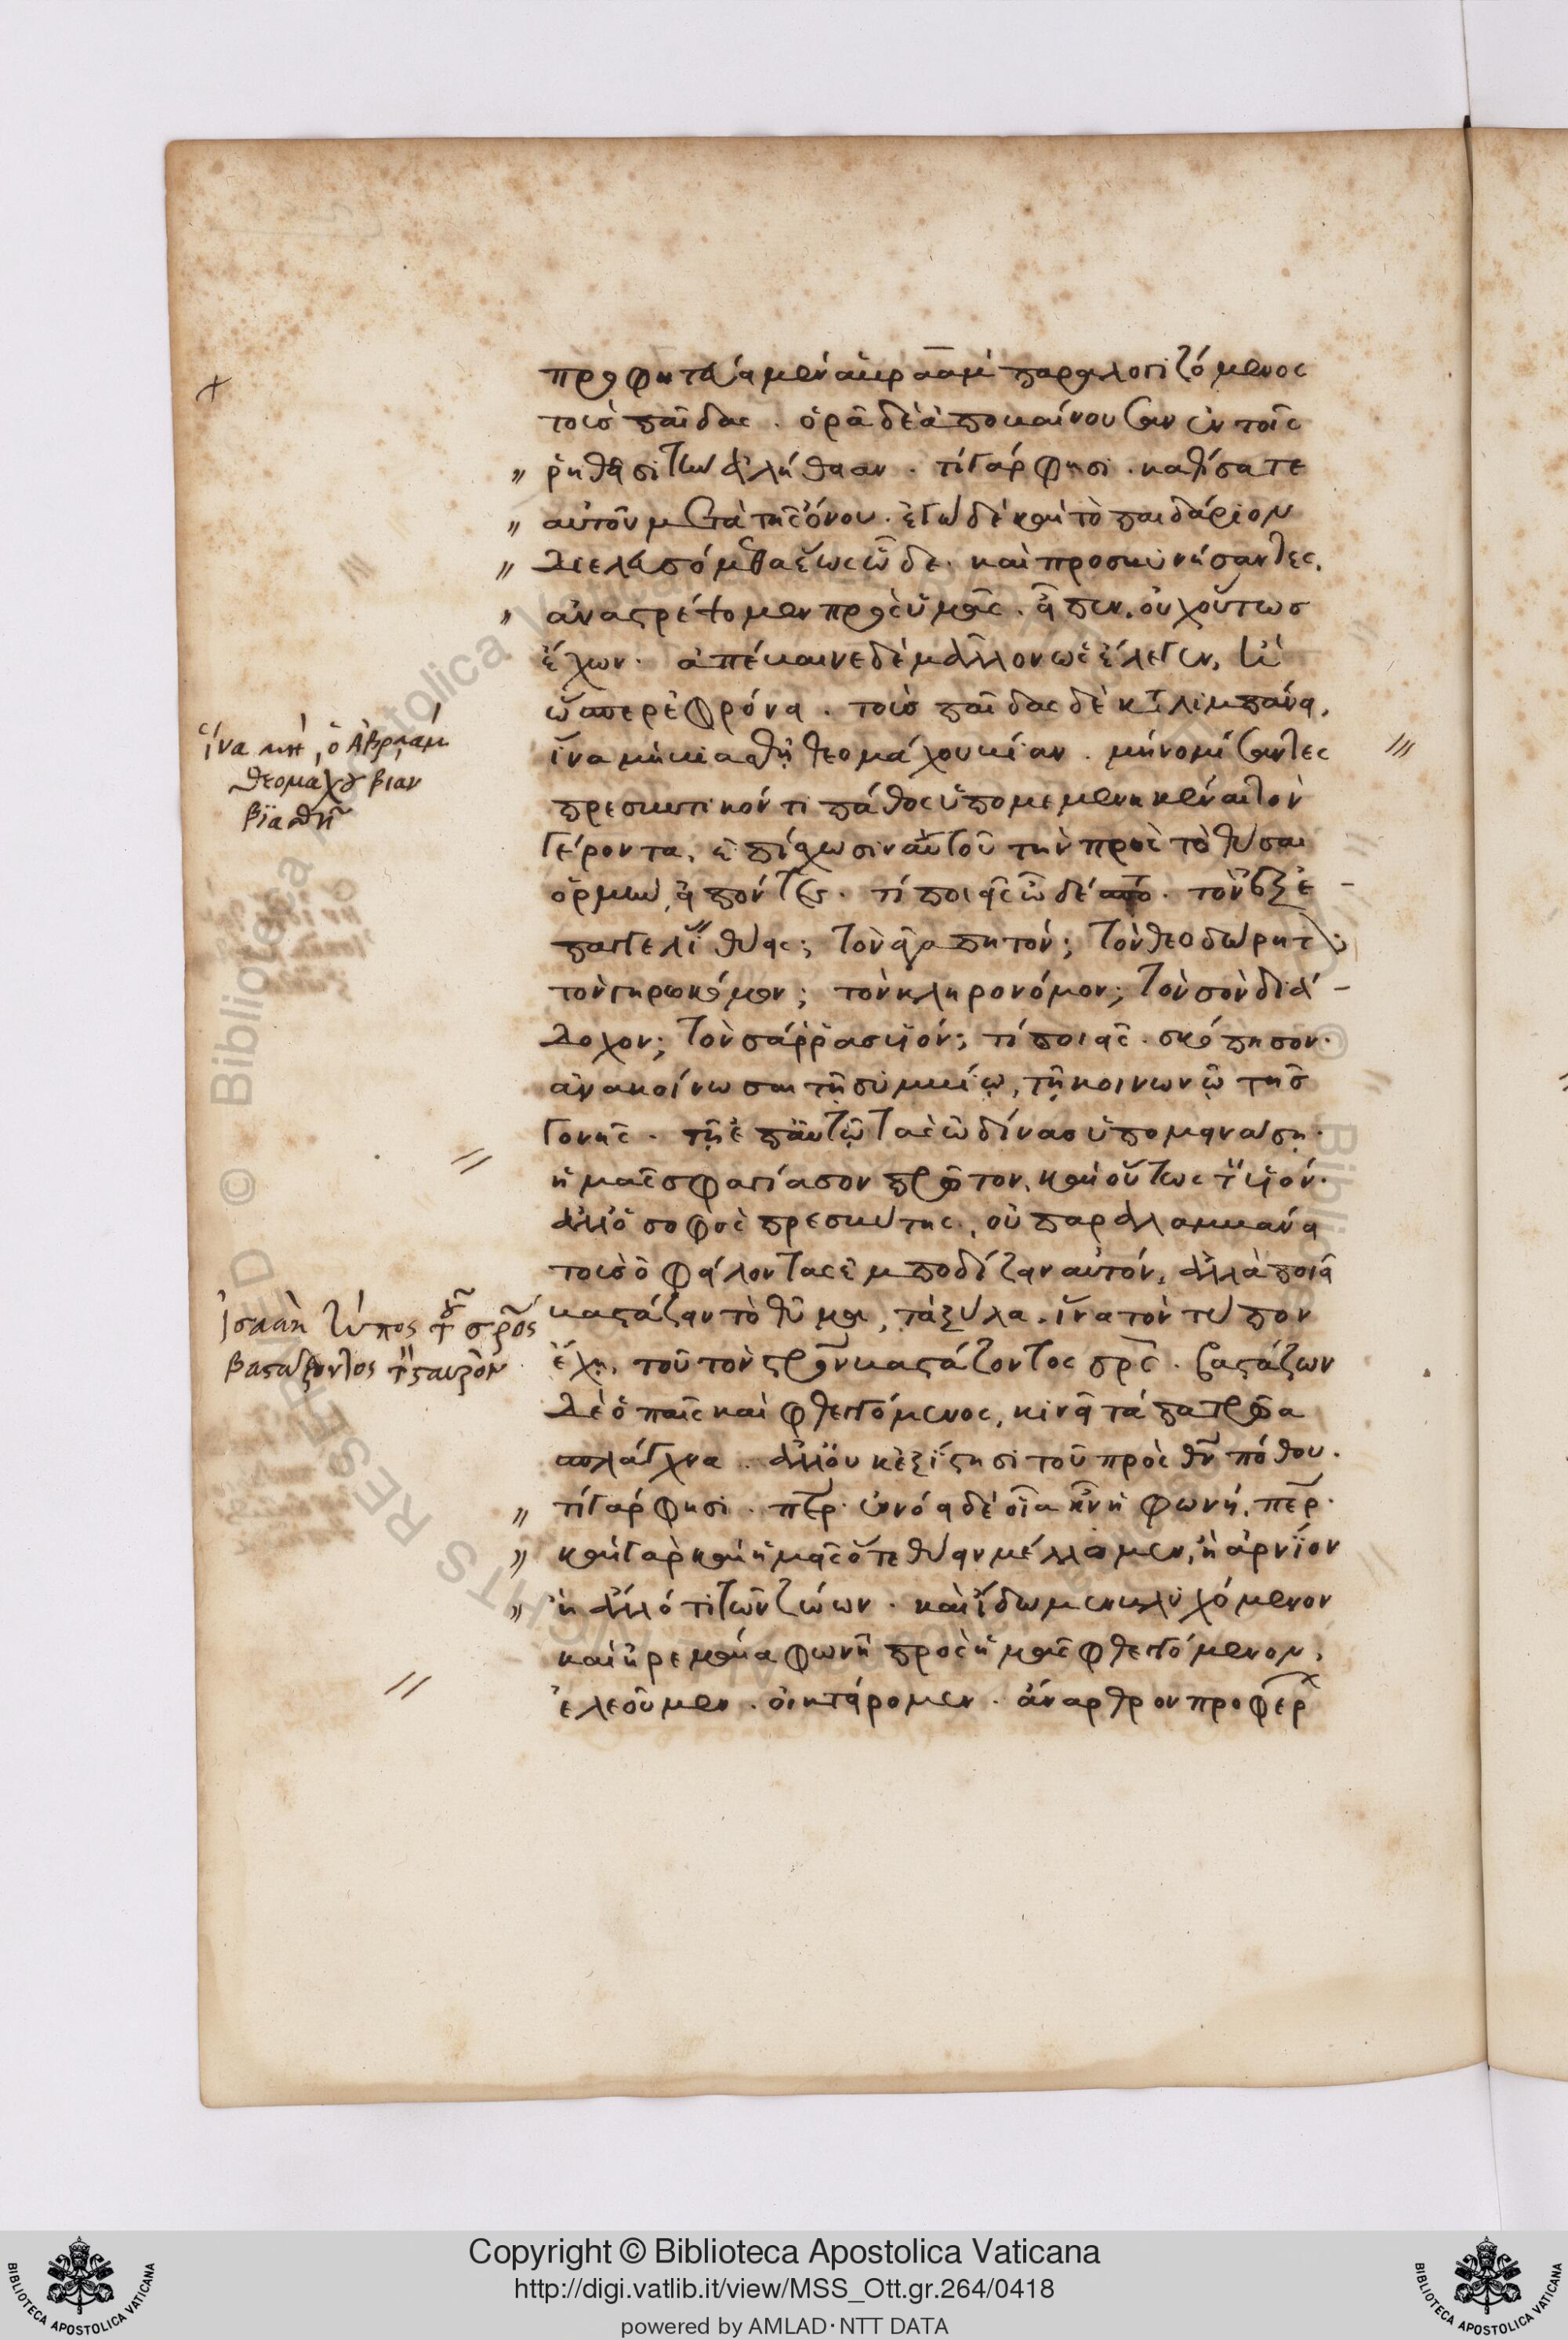 προφητεύει μὲν ἀβραὰμ παραλογιζόμενος
τοὺς παῖδας · ὁρᾶ δὲ ἀποβαίνουσαν ἐν τοῖς
ῥηθεῖσι τὴν ἀλήθειαν · τί γάρ φησι · καθίσατε
αὐτοῦ μετὰ τῆς ὄνου · ἐγὼ δὲ καὶ τὸ παιδάριον
διελευσόμεθα ἕως ὧδε · καὶ προσκυνήσαντες,
ἀναστρέψομεν πρὸς ὑμᾶς · εἶπεν, οὐχ οὕτως
ἔχων · ἀπέβαινε δὲ μᾶλλον ὡς ἔλεγεν, ἢ
ὥσπερ ἐφρόνει · τοὺς παῖδας δὲ καταλιμπάνει,
ἵνα μὴ βιασθῆ θεομάχου βίαν · μὴ νομίσαντες
πρεσβυτικόν τι πάθος ὑπομεμενηκέναι τὸν
γέροντα, ἐπίσχωσιν αὐτοῦ τὴν πρὸς τὸ θῦσαι
ὁρμὴν, εἰπόντες · τί ποιεῖς ὧδε · τὸν ἐξ ἐ
παγγελί θύεις; τὸν ἀγαπητόν; τὸν θεοδώρητ;
τὸν γηρωκόμον; τὸν κληρονόμον; τὸν σὸν διά
δοχον; τὸν σάρρας υἱόν; τί ποιεῖς · σκόπησον ·
ἀνακοίνωσαι τῇ συμβίῳ, τῇ κοινωνῷ τῆς
γονῆς · τῇ ἐπ' αὐτῷ τὰς ὠδῖνας ὑπομεινάσῃ ·
ἡμᾶς σφαγίασον πρῶτον, καὶ οὕτως τ υἱόν ·
ἀλλ' ὁ σοφὸς πρεσβύτης, οὐ παραλαμβάνει
τοὺς ὀφείλοντας ἐμποδίζειν αὐτόν, ἀλλὰ ποιεῖ
βαστάζειν τὸ θῦμα, τὰ ξύλα · ἵνα τὸν τύπον
ἔχῃ, τοῦ τὸν στρὸν βαστάζοντος σρς · βαστάζων
δὲ ὁ παῖς καὶ φθεγγόμενος, κινεῖ τὰ πατρῶα
σπλάγχνα · ἀλλ' οὐκ ἐξίστησι τοῦ πρὸς θν πόθου ·
τί γάρ φησι · περ · ἐννόει δὲ οἵα ἦν ἡ φωνή, περ ·
καὶ γὰρ καὶ ἡμεῖς ὅτε θύειν μέλλομεν, ἢ ἀρνίον
ἢ ἄλλό τι τῶν ζώων · καὶ ἴδωμεν βληχόμενον
καὶ ἠρεμαία φωνῇ πρὸς ἡμᾶς φθεγγόμενον,
ἐλεοῦμεν · οἰκτείρομεν · ἄναρθρον προφέρ
ἵνα μὴ, ὁ Ἀβραὰμ
θεομάχου βιαν
βϊασθῆ
Ἰσαὰκ τύπος τοῦ σρος
βαστάζοντος τ σταυρὸν
Copyright © Biblioteca Apostolica Vaticana
http://digi.vatlib.it/view/MSS_Ott.gr.264/0418
powered by AMLAD·NTT DATA
BIBLIOTECA APOSTOLICA VATICANA
BIBLIOTECA APOSTOLICA VATICANA